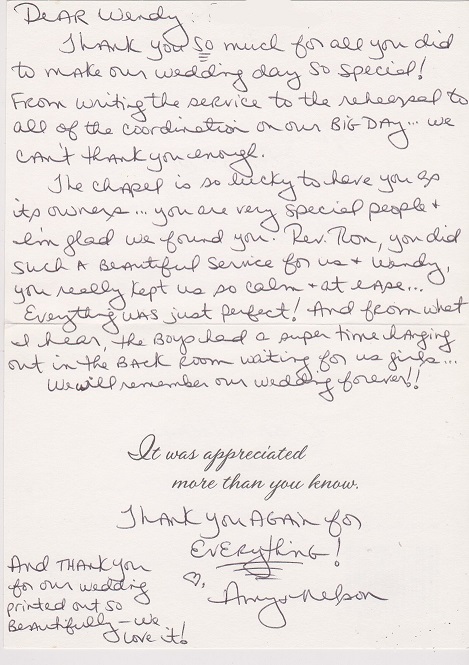 Dear Wendy,
Thank you so much for all you did
to make our wedding day so special!
From writing the service to the rehearsal to
all of the coordination on our BIG DAY... we
can't thank you enough.
The chapel is so lucky to have you as
its owners... you are very special people +
I'm glad we found you. Rev. Ron, you did
such a beautiful service for us + Wendy,
you really kept us so calm + at ease...
Everything was just perfect! And from what
I hear, the boys had a super time hanging
out in the back room waiting for us girls...
We will remember our wedding forever!!
It was appreciated
more than you know.
Thank you AGAIN for
EVERYthing!
♡, Amy + Nelson
And THANK you
for our wedding
printed out so
Beautifully - we
love it!